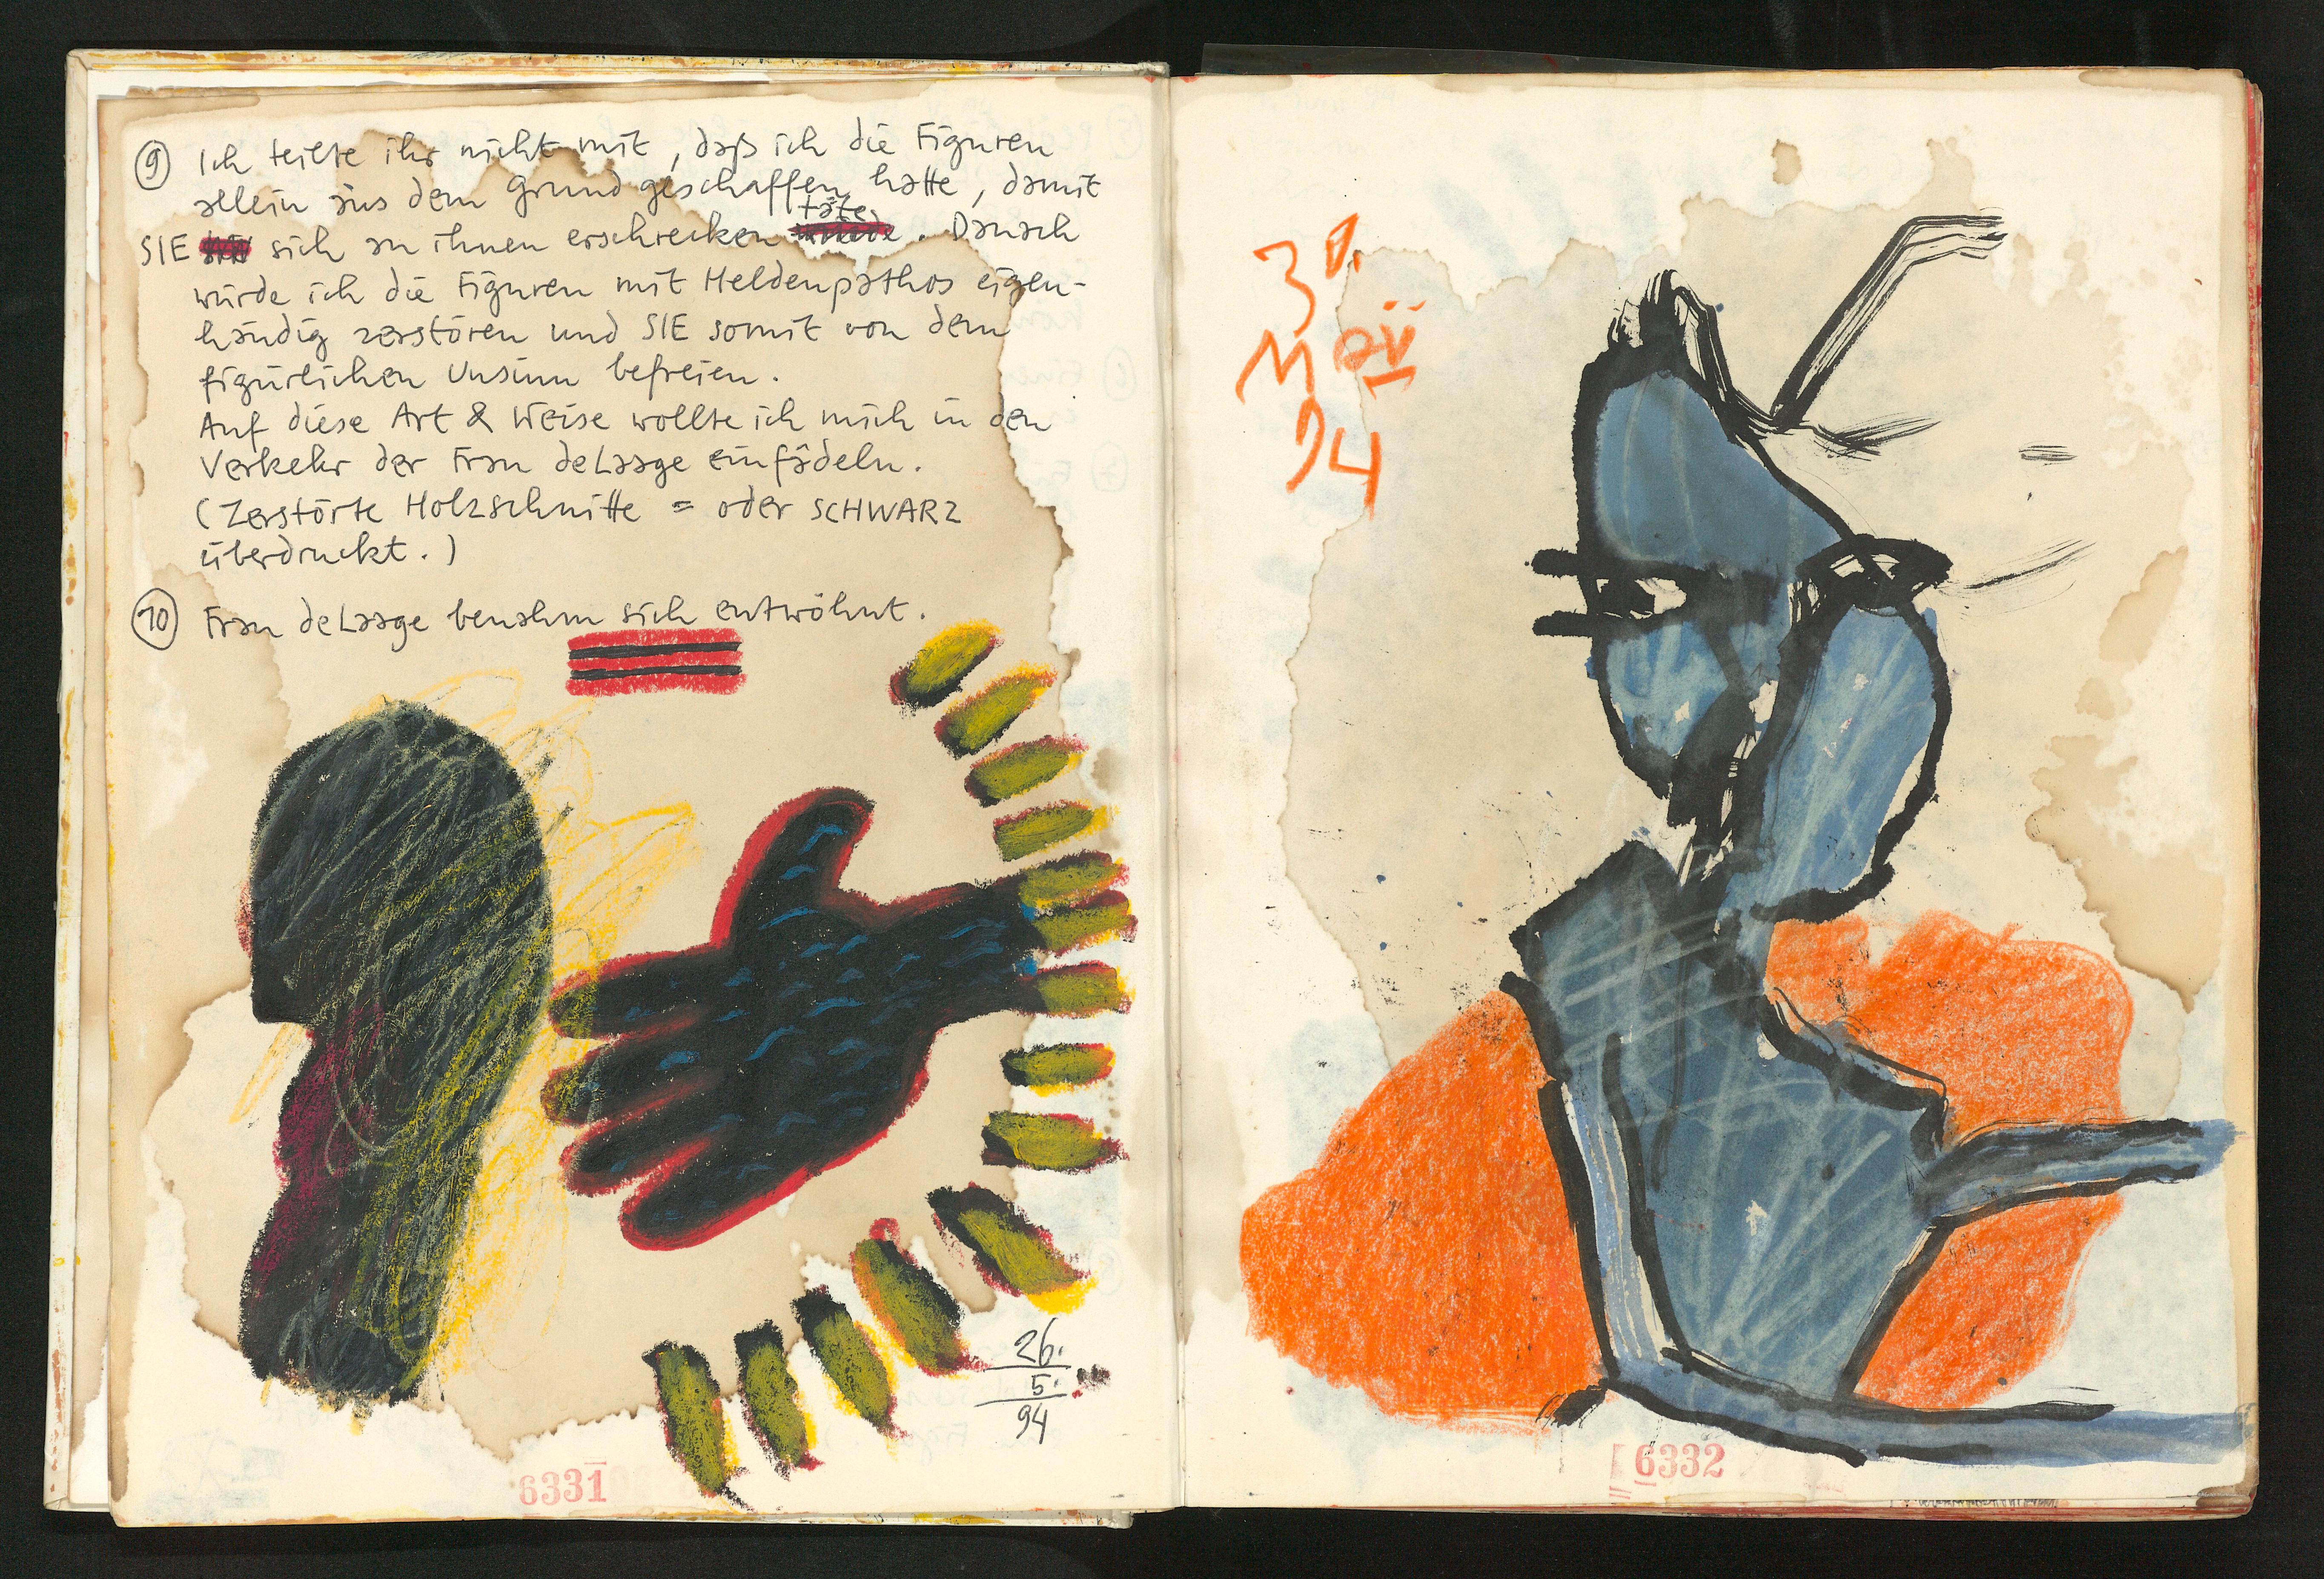 ⑨ Ich teilte ihr nicht mit, daß ich die Figuren
allein aus dem Grund geschaffen hatte, damit
SIE sich an ihnen erschrecken täte. Danach
würde ich die Figuren mit Heldenpathos eigen-
händig zerstören und SIE somit von dem
figürlichen Unsinn befreien.
Auf diese Art & Weise wollte ich mich in den
Verkehr der Frau deLaage einfädeln.
(Zerstörte Holzschnitte = oder SCHWARZ
überdruckt.)
⑩ Frau deLaage benahm sich entwöhnt.
26.
5.
94
6331
30.
Maii
94
6332